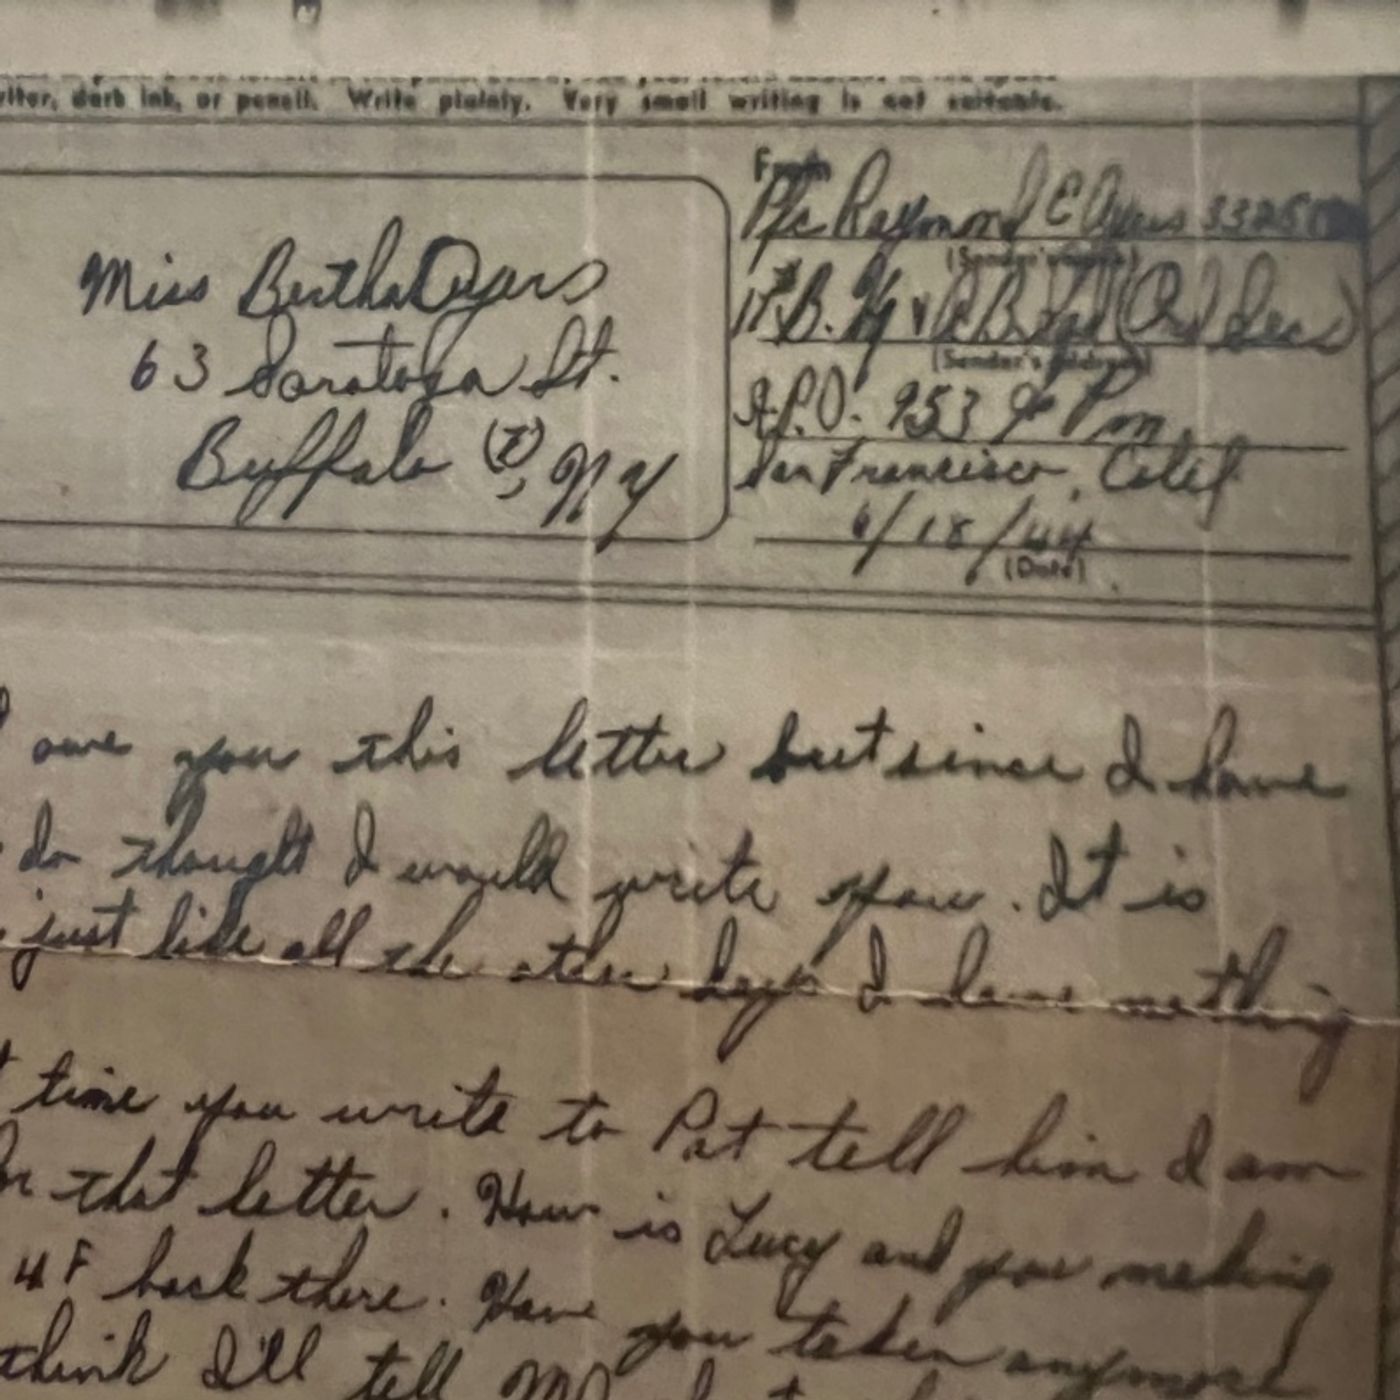 dark ink, or pencil. Write plainly. Very small writing is not suitable.
Miss Bertha Ayers
63 Saratoga St.
Buffalo (7), NY
From
Pfc Raymond E Ayers
(Sender's name)
(Sender's address)
A.P.O. 953 % Pm
San Francisco, Calif
6/18/44
(Date)
owe you this letter but since I have
do thought I would write you. It is
just like all the other days I have nothing
time you write to Pat tell him I am
that letter. How is Lucy and you making
4F back there. Have you taken anymore
think I'll tell